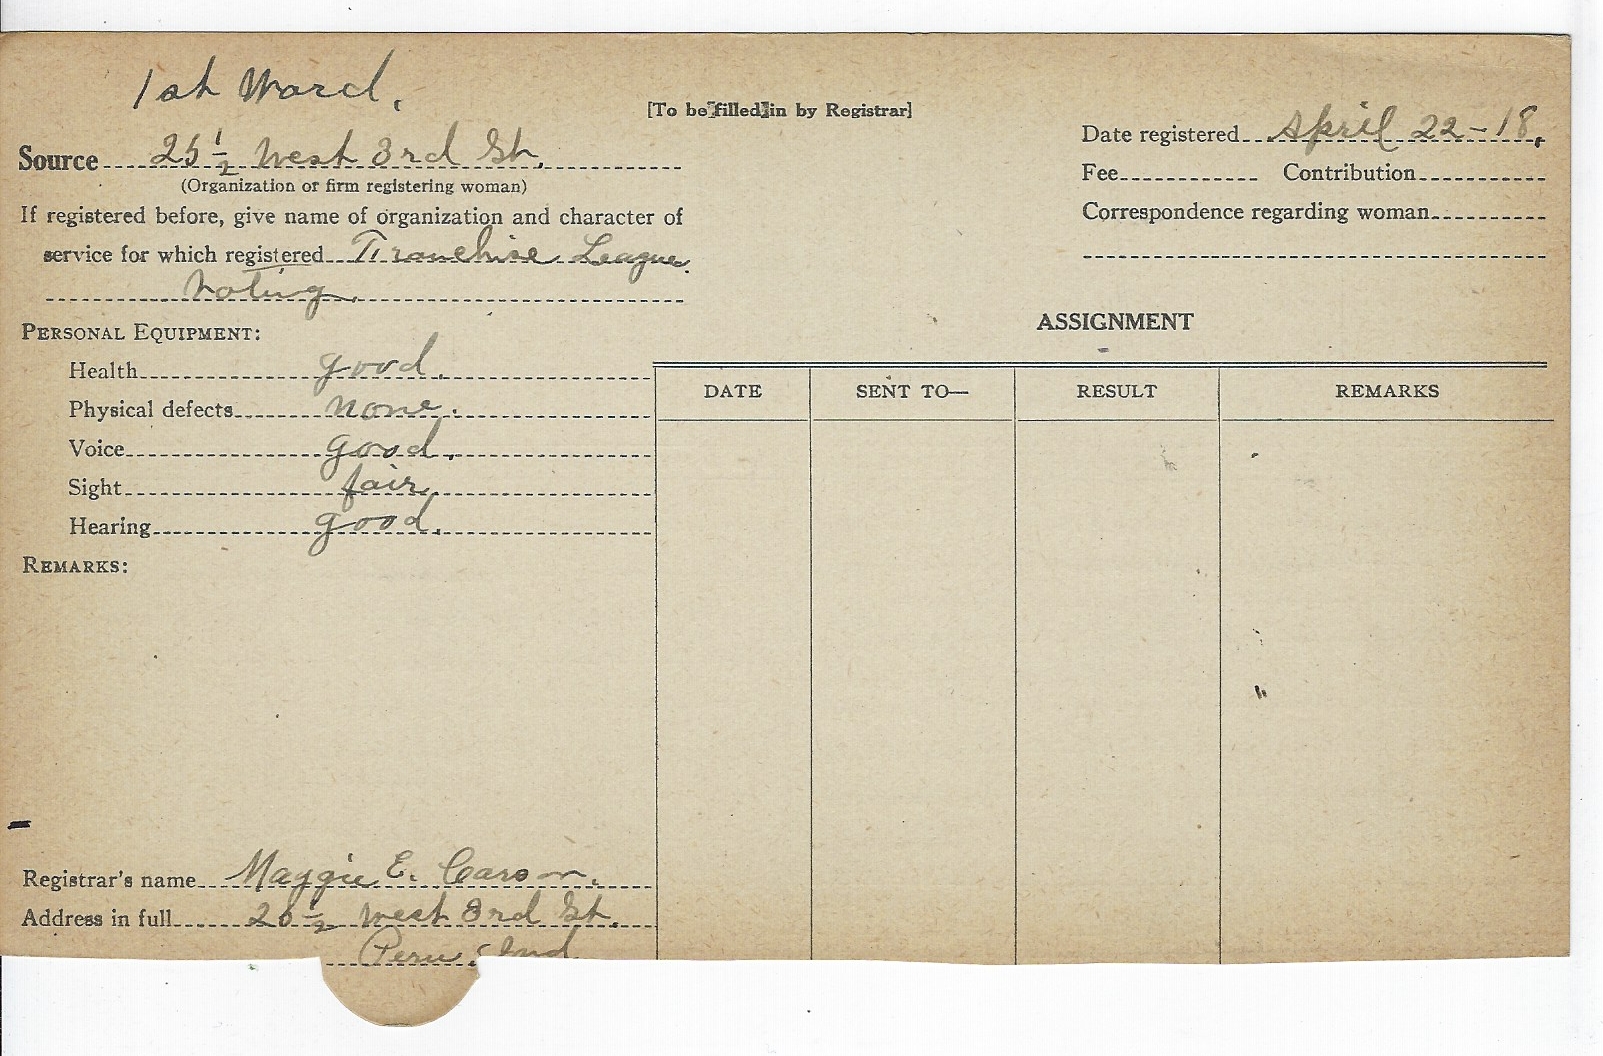 1st Ward.
[To be filled in by Registrar]
Date registered April 22-18.
Source 25 1/2 West 3rd St.
(Organization or firm registering woman)
Fee Contribution
If registered before, give name of organization and character of
Correspondence regarding woman
service for which registered Franchise League.
Voting.
PERSONAL EQUIPMENT:
ASSIGNMENT
Health good.
DATE SENT TO— RESULT REMARKS
Physical defects none.
Voice good.
Sight fair.
Hearing good.
REMARKS:
Registrar's name Maggie E. Carson.
Address in full 25 1/2 West 3rd St.
Peru, Ind